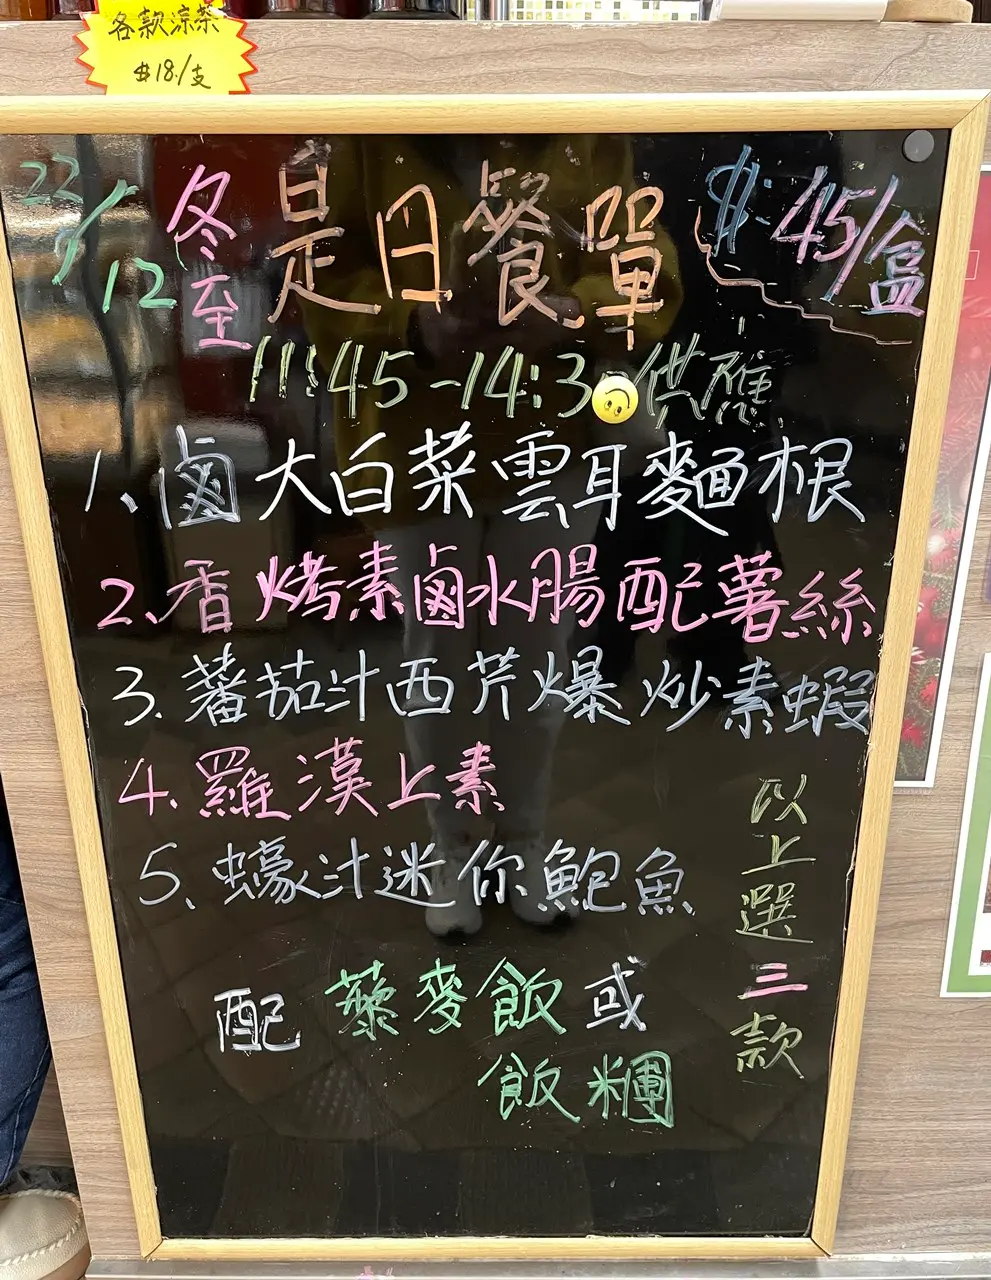 各款涼茶
$18/支
22/12 冬至 是日餐單 $:45/盒
11:45-14:30供應
1、鹵大白菜雲耳麵根
2、香烤素鹵水腸配薯絲
3.蕃茄汁西芹爆炒素蝦
4.羅漢上素
5、蠔汁迷你鮑魚
以上選三款
配 藜麥飯或
飯糰